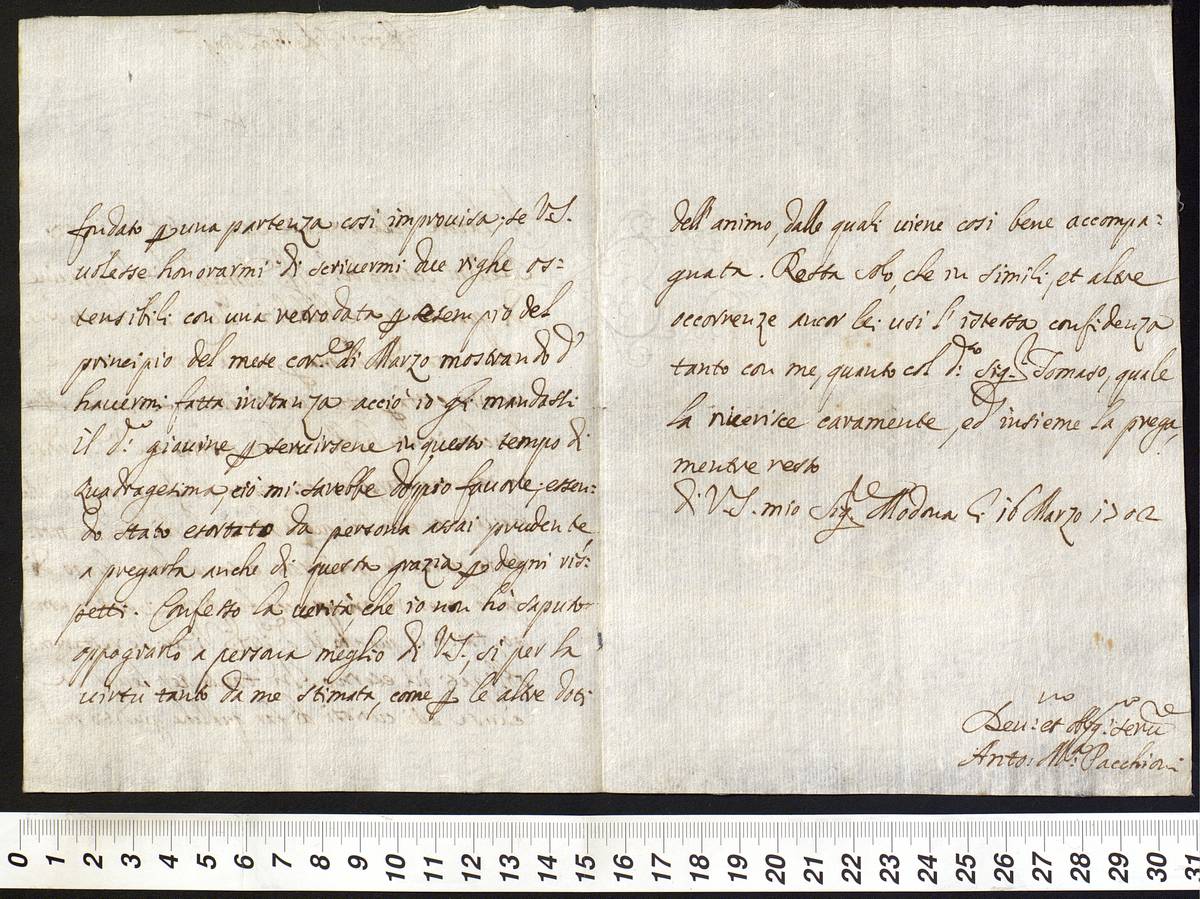 fondato p una partenza così improuisa; se V.S.
uolesse honorarmi di scriuermi due righe os=
tensibili con una retrodata p esempio del
principio del mese cor.te di Marzo mostrando d'
hauermi fatta instanza acciò io gli mandassi
il d.o giouine p seruirsene in questo tempo di
Quadragesima, ciò mi sarebbe doppio fauore; essen=
do stato esortato da persona assai prudente
a pregarla anche di questa grazia p degni ris=
petti. Confesso la uerità, che io non hò saputo
appogiarlo a persona meglio di V.S., si per la
uirtù tanto da me stimata, come p le altre doti
dell'animo, dalle quali uiene così bene accompa=
gnata. Resta solo, che in simili, et altre
occorrenze ancor lei usi l'istessa confidenza
tanto con me, quanto col d.to Sig.r Tomaso, quale
la riuerisce caramente, ed insieme la prega,
mentre resto
di V.S. mio Sig.re Modona li 16 Marzo 1702
Deu.mo et Obg.mo seru.e
Anto: M.a Pacchioni
0 1 2 3 4 5 6 7 8 9 10 11 12 13 14 15 16 17 18 19 20 21 22 23 24 25 26 27 28 29 30 31